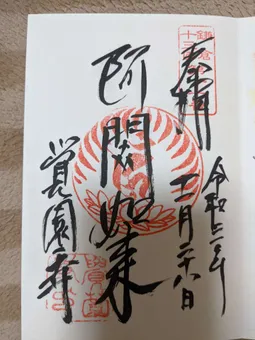 奉拝
阿閦如来
覚園寺
令和二年
十一月二十八日
鎌倉
十三